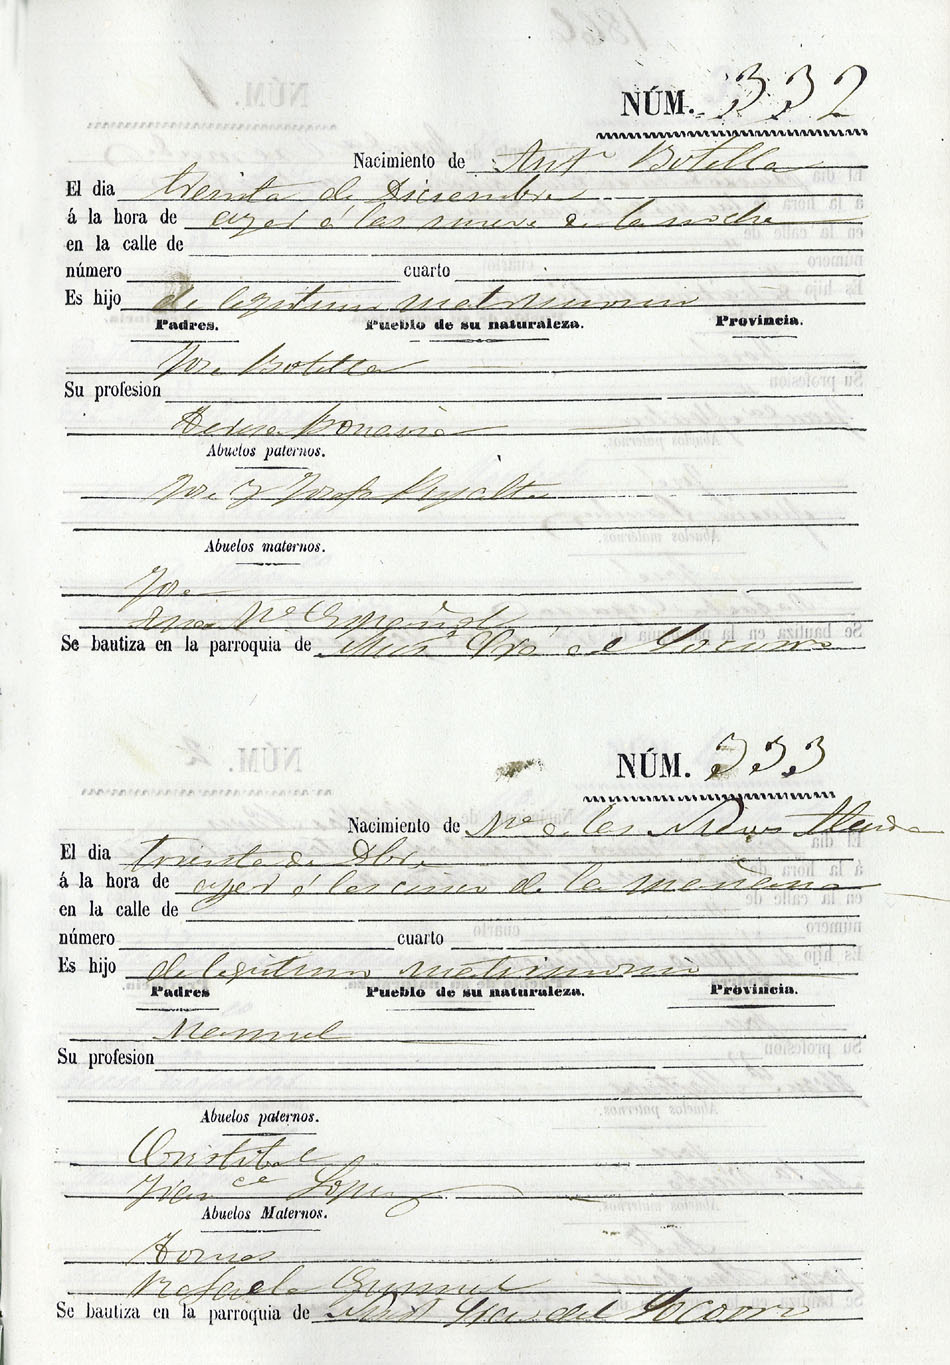 NÚM. 332
Nacimiento de Antº Botella
El dia treinta de Diciembre
á la hora de ayer á las nueve de la noche
en la calle de
número cuarto
Es hijo de legitimo matrimonio
Padres. Pueblo de su naturaleza. Provincia.
Jose Botella
Su profesion
Teresa
Abuelos paternos.
Jose y Josefa
Abuelos maternos.
Jose
Mª Español
Se bautiza en la parroquia de Ntra Sra del Socorro
NÚM. 333
Nacimiento de Mª de las Nieves
El dia treinta de Dbre
á la hora de ayer á las cinco de la mañana
en la calle de
número cuarto
Es hijo de legitimo matrimonio
Padres Pueblo de su naturaleza. Provincia.
Manuel
Su profesion
Abuelos paternos.
Cristobal
Franca Lopez
Abuelos Maternos.
Tomas
Rafaela
Se bautiza en la parroquia de Ntra Sra del Socorro